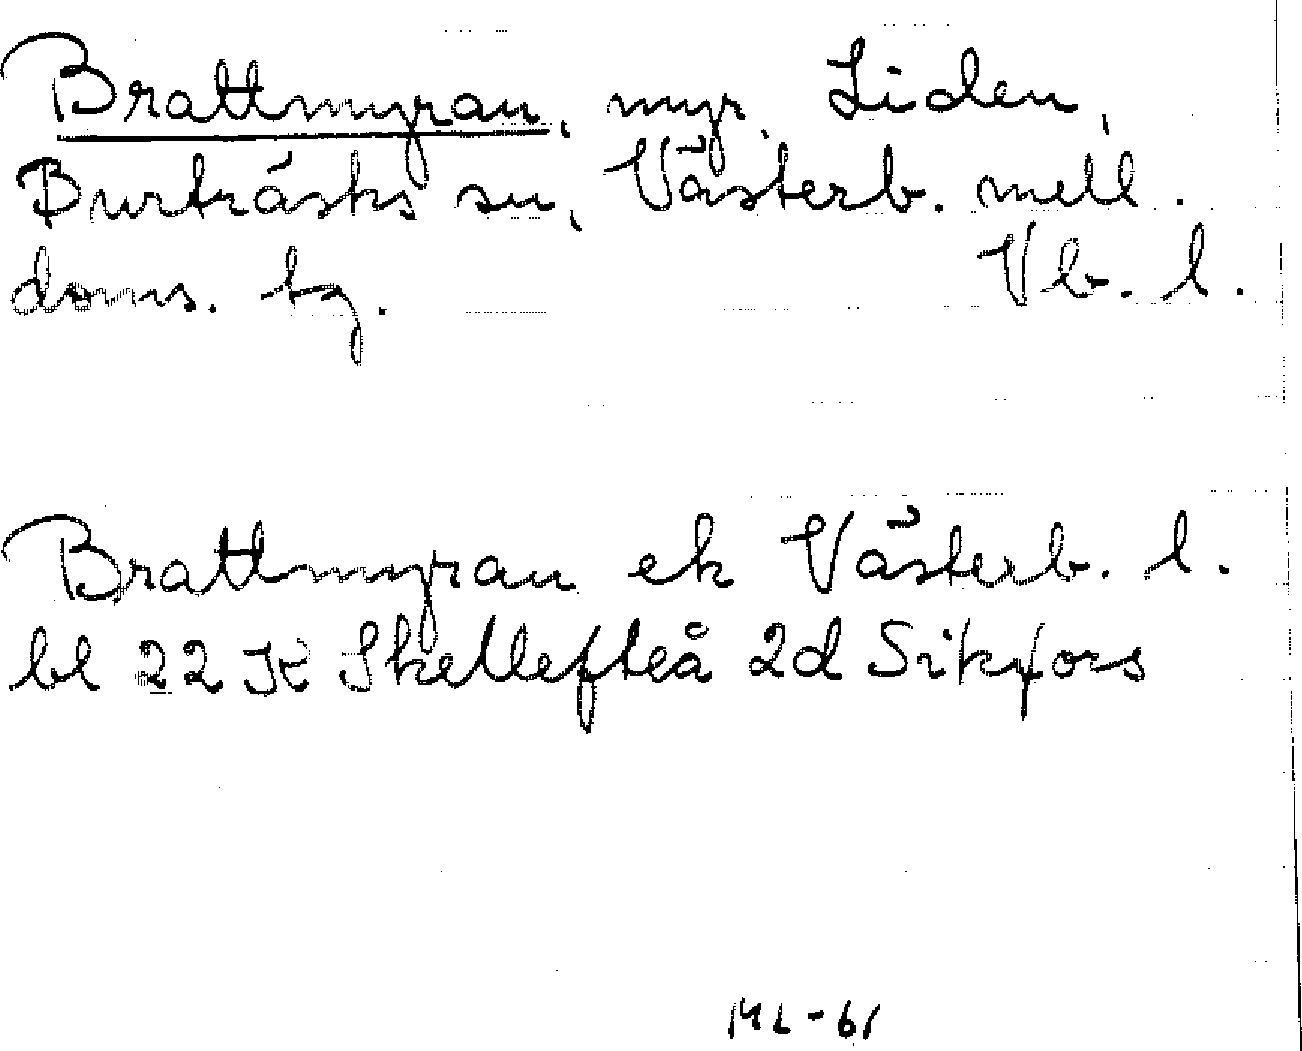 Brattmyran, myr, Liden,
Burträsks sn, Västerb. mell.
doms. tg. Vb. l.
Brattmyran ek Västerb. l.
bl 22 K Skellefteå 2d Sikfors
ML-61